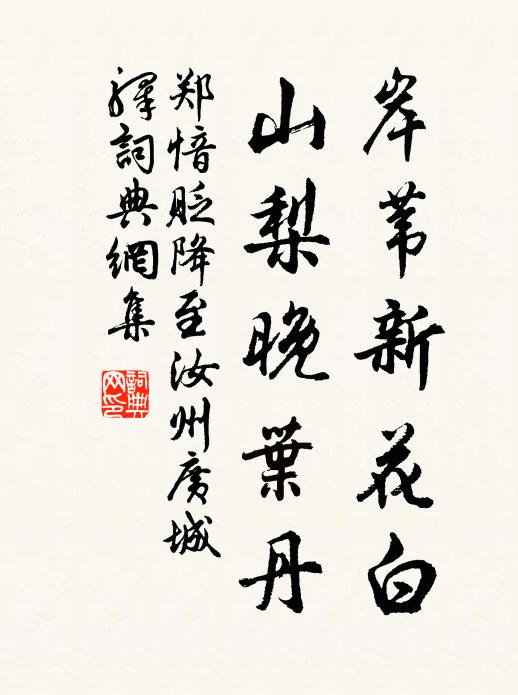 岸苇新花白
山梨晚葉丹
郑愔貶降至汝州廣城
驛詞典網集
詞典
网印